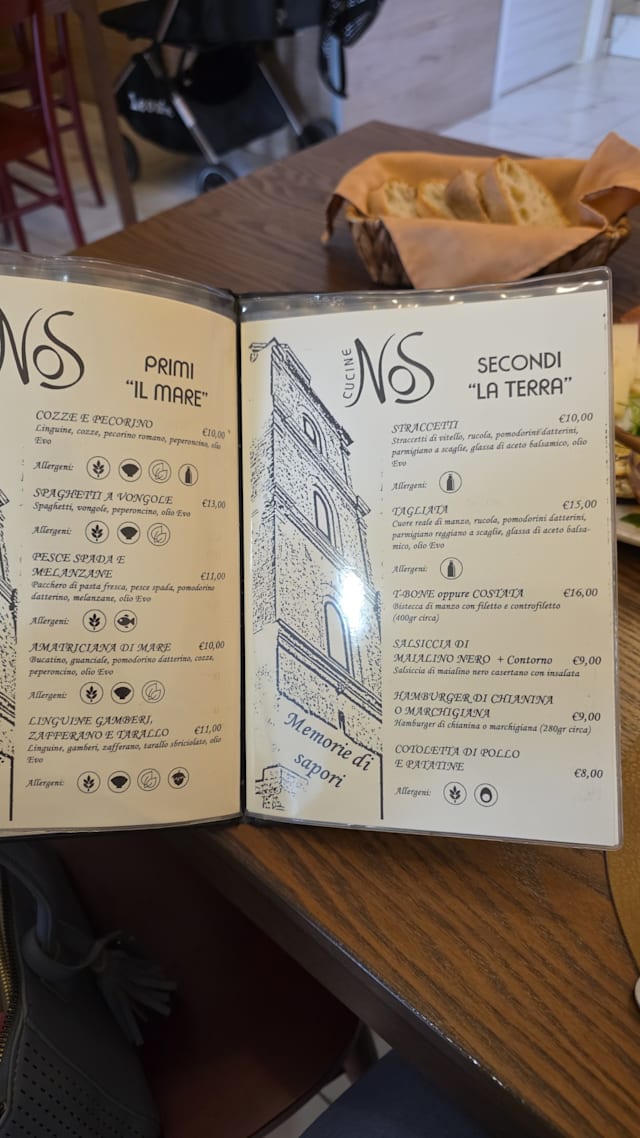 NOS
PRIMI
"IL MARE"
COZZE E PECORINO
€10,00
Linguine, cozze, pecorino romano, peperoncino, olio
Evo
Allergeni:
SPAGHETTI A VONGOLE
€13,00
Spaghetti, vongole, peperoncino, olio Evo
Allergeni:
PESCE SPADA E
MELANZANE
€11,00
Pacchero di pasta fresca, pesce spada, pomodorino
datterino, melanzane, olio Evo
Allergeni:
AMATRICIANA DI MARE
€10,00
Bucatino, guanciale, pomodorino datterino, cozze,
peperoncino, olio Evo
Allergeni:
LINGUINE GAMBERI,
ZAFFERANO E TARALLO
€11,00
Linguine, gamberi, zafferano, tarallo sbriciolato, olio
Evo
Allergeni:
CUCINE
NOS
SECONDI
"LA TERRA"
STRACCETTI
€10,00
Straccetti di vitello, rucola, pomodorini datterini,
parmigiano a scaglie, glassa di aceto balsamico, olio
Evo
Allergeni:
TAGLIATA
€15,00
Cuore reale di manzo, rucola, pomodorini datterini,
parmigiano reggiano a scaglie, glassa di aceto balsa-
mico, olio Evo
Allergeni:
T-BONE oppure COSTATA
€16,00
Bistecca di manzo con filetto e controfiletto
(400gr circa)
SALSICCIA DI
MAIALINO NERO + Contorno
€9,00
Salsiccia di maialino nero casertano con insalata
HAMBURGER DI CHIANINA
O MARCHIGIANA
€9,00
Hamburger di chianina o marchigiana (280gr circa)
COTOLETTA DI POLLO
E PATATINE
€8,00
Allergeni:
Memorie di
sapori